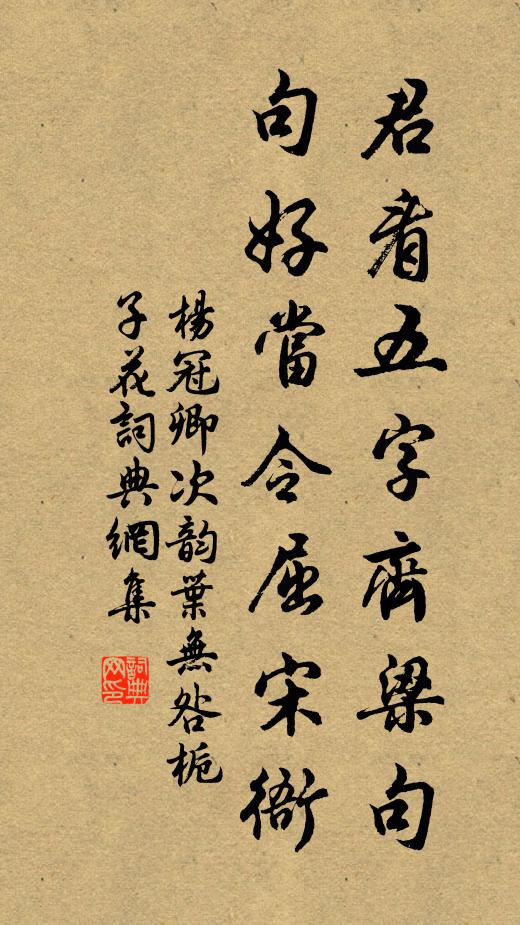 君看五字齊梁句
句好當令屈宋衙
楊冠卿次韵葉無咎栀
子花詞典網集
詞典網印